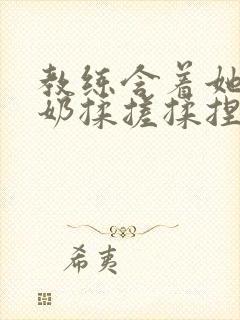 教练含着她
奶揉搓揉捏
希夷